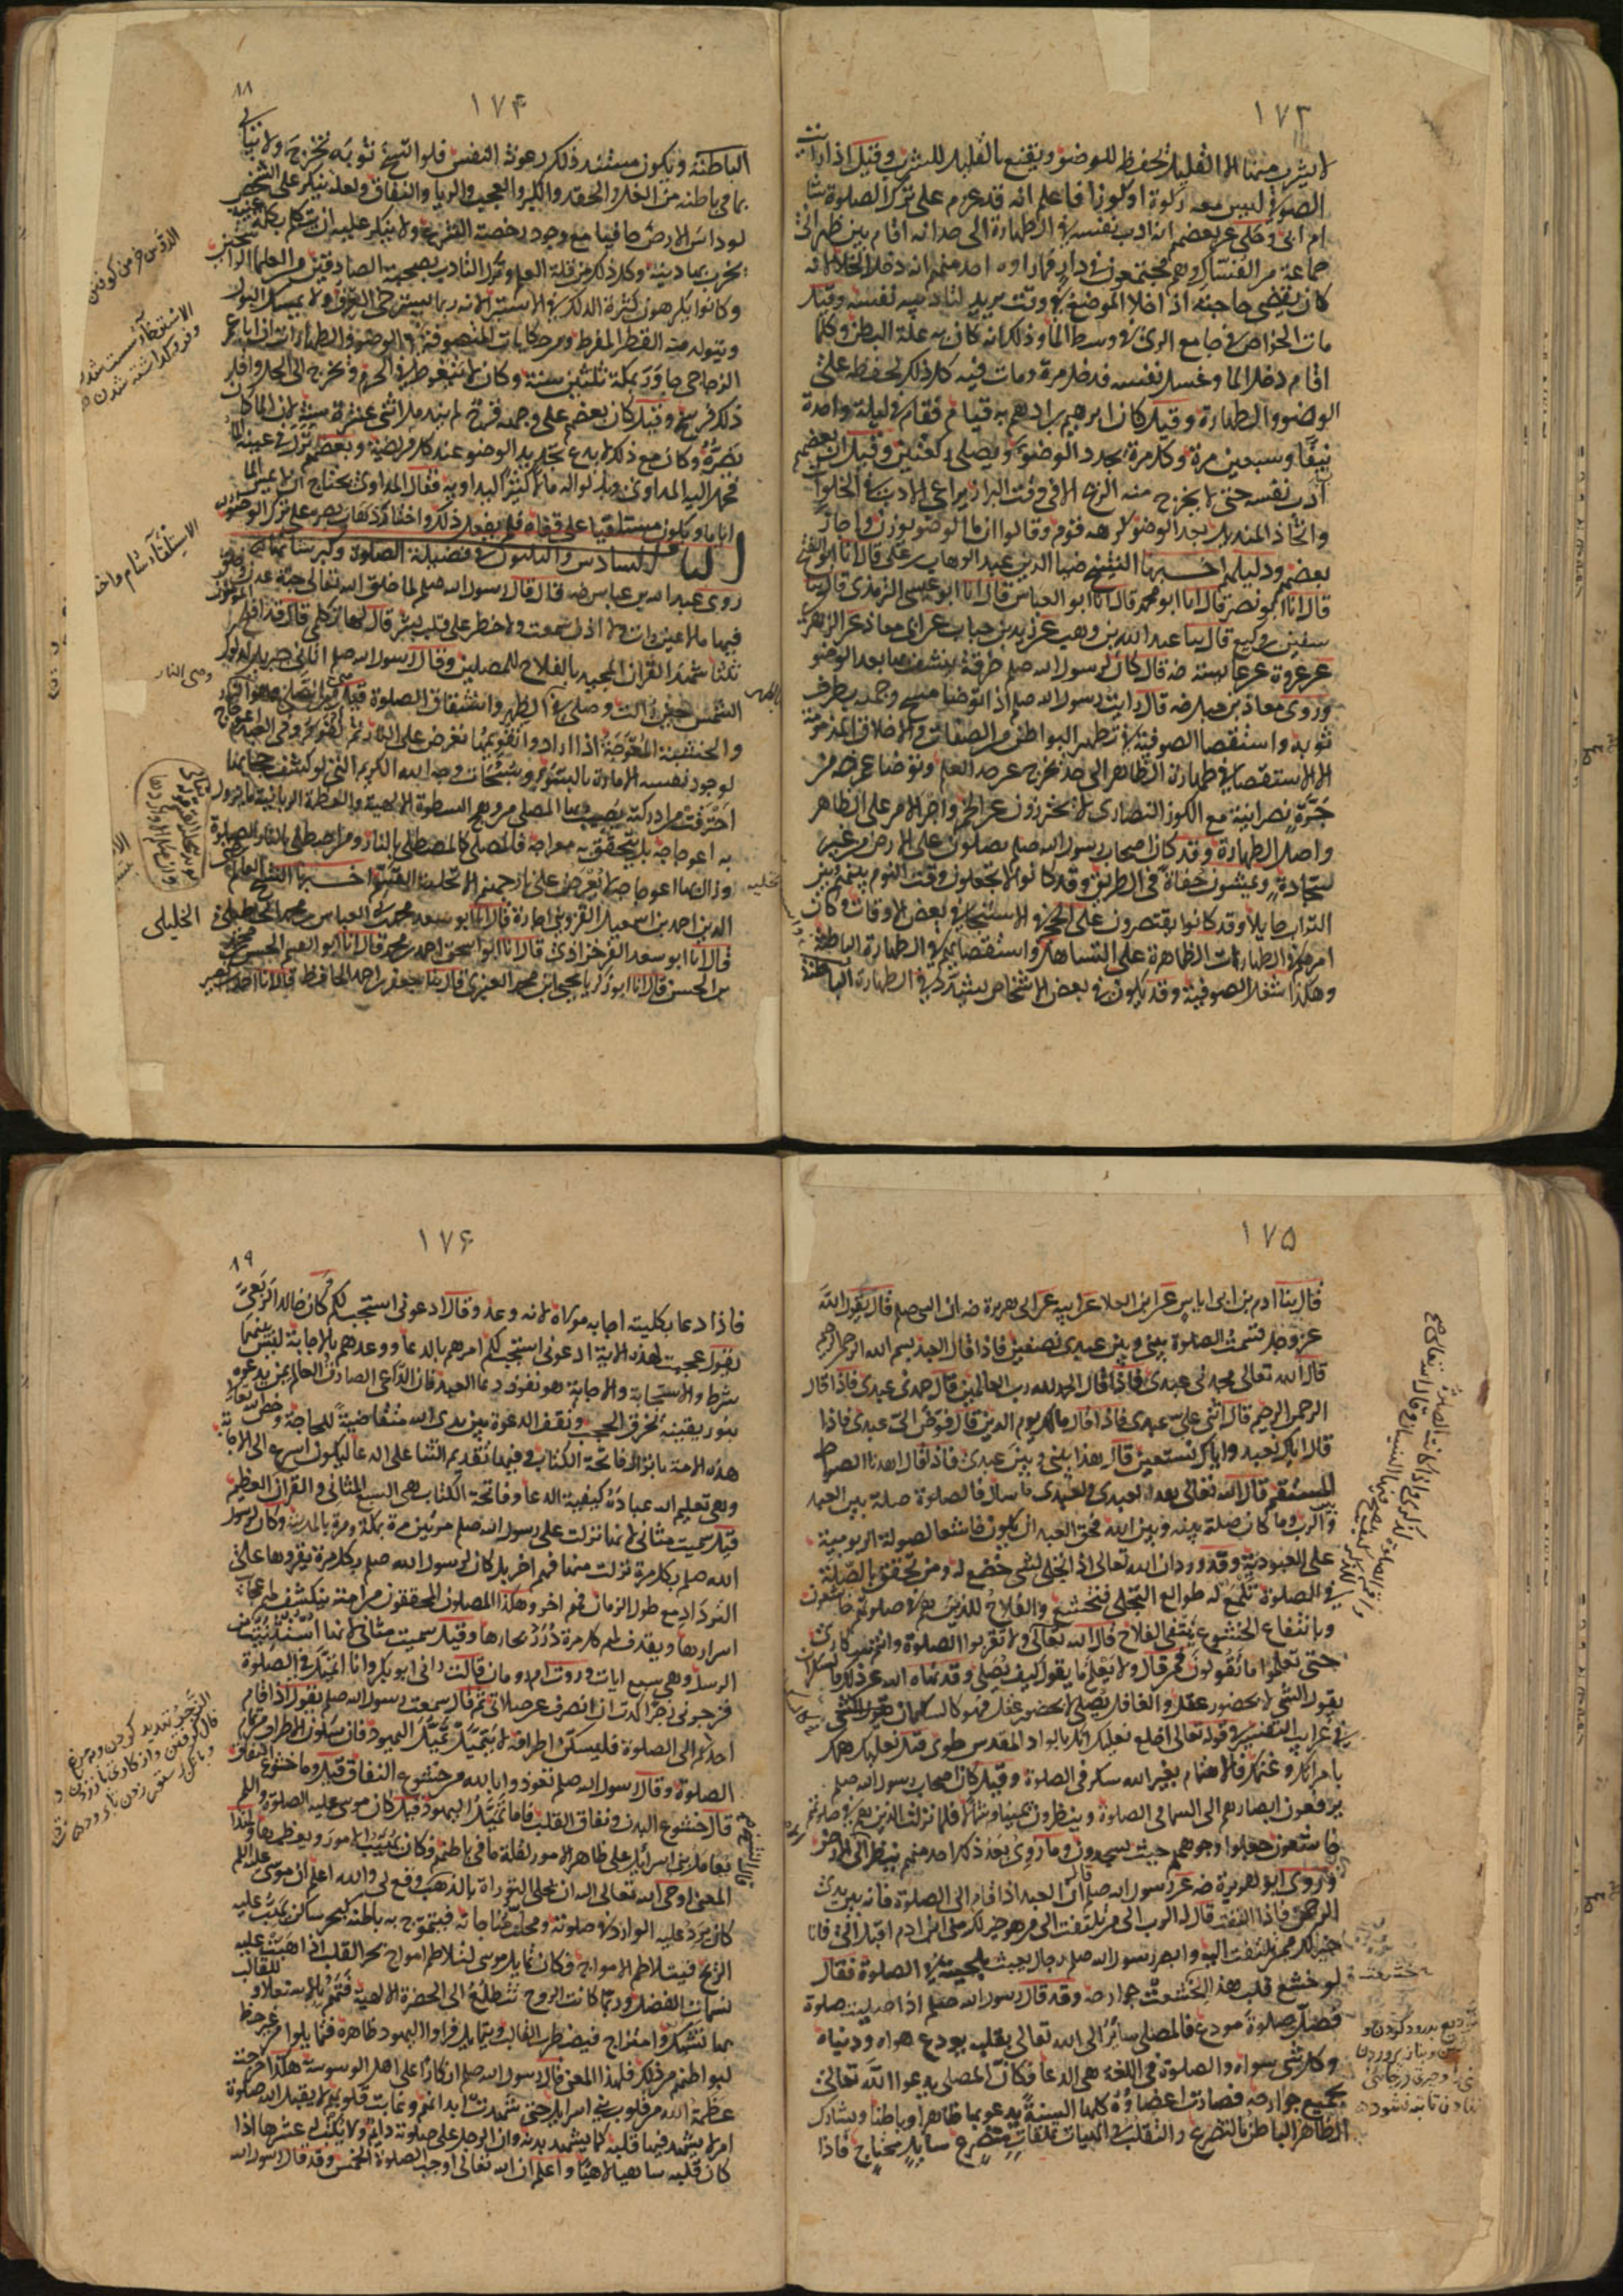 ١٧٣
لا يشرب منها الا القليل يحفظ للوضو ويقنع بالقليل للشرب وقيل اذا رايت
الصوفي ليس معه ركوة او كوز فاعلم انه قد عزم على ترك الصلوة شا
ام ابى وحكي عن بعضهم انه ادب نفسه في الطهارة الى حد انه اقام بين ظهراني
جماعة من النساك وهم مجتمعون في دار فما راه احد منهم انه دخل الخلا لانه
كان يقضي حاجته اذا خلا الموضع في وقت يريد لتاديب نفسه وقيل
مات الخواص في جامع الري في وسط الما وذلك انه كان به علة البطن وكلما
اقام دخل الما وغسل نفسه فدخل مرة ومات فيه كل ذلك لحفظه على
الوضو والطهارة وقيل كان ابرهيم بن ادهم به قيام فقام في ليلة واحدة
نيفا وسبعين مرة وكل مرة يجدد الوضو ويصلي ركعتين وقيل ان بعضهم
ادب نفسه حتى لا يخرج منه الريح الا في وقت البراز يراعي الادب في الخلوات
واتخاذ المنديل بعد الوضو كرهه قوم وقالوا ان ما الوضو يوزن واجاز
بعضهم ودليلهم اخبرنا الشيخ ضيا الدين عبد الوهاب بن علي قال انا ابو الفتح
قال انا ابو نصر قال انا ابو محمد قال انا ابو العباس قال انا ابو عيسى الترمذي قال ثنا
سفين بن وكيع قال ثنا عبد الله بن وهب عن زيد بن حباب عن ابي معاذ عن الزهري
عن عروة عن عايشة رضه قال كان لرسول الله صلعم خرقة ينشف بها بعد الوضو
وروى معاذ بن جبل رضه قال رايت رسول الله صلعم اذا توضا مسح وجهه بطرف
ثوبه واستقصا الصوفية في تطهير البواطن من الصفات والاخلاق المذمومة
لا الاستقصا في طهارة الظاهر الى حد يخرج عن حد العلم وتوضا عمر رضه من
جرة نصرانية مع الكون النصارى لا يحترزون عن الخمر واجر الامر على الظاهر
واصل الطهارة وقد كان اصحاب رسول الله صلعم يصلون على الارض من غير
سجادة ويمشون حفاة في الطريق وقد كانوا لا يجعلون وقت النوم بينهم وبين
التراب حايلا وقد كانوا يقتصرون على الحجر في الاستنجا في بعض الاوقات وكان
امرهم في الطهارات الظاهرة على التساهل واستقصاؤهم في الطهارة الباطنة
وهكذا شغل الصوفية وقد يكون في بعض الاشخاص تشدد في الطهارة
١٧۴
الباطنة ويكون مستند ذلك رعونة النفس فلو اتسخ ثوبه تحرج ولا يبالي
بما في باطنه من الغل والحقد والكبر والعجب والريا والنفاق ولعله ينكر على الشخص
لو داس الارض حافيا مع وجود رخصة الشرع ولا ينكر عليه ان يتكلم بكلمة غيبة
يخرب بها دينه وكل ذلك من قلة العلم وترك التادب بصحبة الصادقين من العلما الراسخين
وكانوا يكرهون كثرة الدلك في الاستبرا لانه ربما يسترخي العرق ولا يمسك البول
ويتولد منه القطر المفرط ومن حكايات المتصوفة في الوضو والطهارات ان ابا عمرو
الزجاجي جاور بمكة ثلثين سنة وكان لا يتغوط في الحرم ويخرج الى الحل واقل
ذلك فرسخ وقيل كان بعضهم على وجهه قرح لم يندمل اثني عشرة سنة لان الما كان
يضره وكان مع ذلك لا يدع تجديد الوضو عند كل فريضة وبعضهم نزل في عينه الما
فحمل اليه المداوي وبذلوا له مالا كثيرا ليداويه فقال المداوي يحتاج الى ترك الما
اياما ويكون مستلقيا على قفاه فلم يفعل ذلك واختار ذهاب بصره على ترك الوضو
الباب السادس والثلثون في فضيلة الصلوة وكبر شانها
روى عبد الله بن عباس رضه قال قال رسول الله صلعم لما خلق الله تعالى جنة عدن وخلق
فيها ما لا عين رات ولا اذن سمعت ولا خطر على قلب بشر قال لها تكلمي قالت قد افلح المومنون
ثلثا شهد القران المجيد بالفلاح للمصلين وقال رسول الله صلعم اتاني جبريل لدلوك
الشمس حين زالت وصلى بي الظهر واشتقاق الصلوة قيل من الصلى وهو النار
والخشبة المعوجة اذا ارادوا تقويمها تعرض على النار ثم تقوم وفي العبد اعوجاج
لوجود نفسه الامارة بالسوء وسبحات وجه الله الكريم التي لو كشف حجابها
احرقت من ادركته يصيب بها المصلي من وهج السطوة الالهية والعظمة الربانية ما يزول
به اعوجاجه بل يتحقق به معراجه فالمصلي كالمصطلي بالنار ومن اصطلى بنار الصلوة
وزال بها اعوجاجه لا يعرض على نار جهنم الا تحلة القسم اخبرنا الشيخ العالم رضي
الدين احمد بن اسمعيل القزويني اجازة قال انا ابو سعيد محمد بن ابي العباس بن محمد الخليلي
قال انا ابو سعد الفرخزادي قال انا ابو اسحق احمد بن محمد قال انا ابو القسم الحسن بن محمد
بن الحسن قال انا ابو زكريا يحيى بن محمد العنبري قال ثنا جعفر بن احمد الحافظ قال انا احمد بن نصر
الخليلي
١٧۵
قال ثنا ادم بن ابي اياس عن ابن العلا عن ابيه عن ابي هريرة رضه ان النبي صلعم قال يقول الله
عز وجل قسمت الصلوة بيني وبين عبدي نصفين فاذا قال العبد بسم الله الرحمن الرحيم
قال الله تعالى مجدني عبدي فاذا قال الحمد لله رب العالمين قال حمدني عبدي فاذا قال
الرحمن الرحيم قال اثنى علي عبدي فاذا قال مالك يوم الدين قال فوض الي عبدي فاذا
قال اياك نعبد واياك نستعين قال هذا بيني وبين عبدي فاذا قال اهدنا الصراط
المستقيم قال الله تعالى هذا لعبدي ولعبدي ما سال فالصلوة صلة بين العبد
والرب وما كان صلة بينه وبين الله فحق العبد ان يكون خاشعا لصولة الربوبية
على العبودية وقد ورد ان الله تعالى اذا تجلى لشي خضع له ومن تحقق بالصلة
في الصلوة تلمع له طوالع التجلي فتخشع والفلاح للذين هم في صلوتهم خاشعون
وبانتفاء الخشوع ينتفي الفلاح قال الله تعالى ولا تقربوا الصلوة وانتم سكارى
حتى تعلموا ما تقولون فمن قال ولا يعلم ما يقول كيف يصلي وقد نهاه الله عن ذلك فالسكران
يقول الشي لا بحضور عقل والغافل يصلي لا بحضور عقل فهو كالسكران
في غرايب التفسير في قوله تعالى اخلع نعليك انك بالواد المقدس طوى قيل نعليك همك
بامراتك وغنمك فالاهتمام بغير الله سكر في الصلوة وقيل كان اصحاب رسول الله صلعم
يرفعون ابصارهم الى السما في الصلوة وينظرون يمينا وشمالا فلما نزلت الذين هم في صلوتهم
خاشعون جعلوا وجوههم حيث يسجدون وما روي بعد ذلك احد منهم ينظر الا الى الارض
وروى ابو هريرة رضه عن رسول الله صلعم قال ان العبد اذا قام الى الصلوة فانه بين يدي
الرحمن فاذا التفت قال له الرب الى من تلتفت الى من هو خير لك مني ابن ادم اقبل الي فانا
خير لك ممن تلتفت اليه وابصر رسول الله صلعم رجلا يعبث بلحيته في الصلوة فقال
لو خشع قلب هذا لخشعت جوارحه وقد قال رسول الله صلعم اذا صليت صلوة
فصل صلوة مودع فالمصلي سائر الى الله تعالى بقلبه يودع هواه ودنياه
وكل شي سواه والصلوة في اللغة هي الدعا فكان المصلي يدعو الله تعالى
بجميع جوارحه فصارت اعضاؤه كلها السنة يدعو بها ظاهرا وباطنا ويشارك
الظاهر الباطن بالتضرع والتقلب في الهيات تملقات متضرع سايل محتاج فاذا
١٧۶
فاذا دعا بكليته اجابه مولاه لانه وعد وقال ادعوني استجب لكم كان خالد الربعي
يقول عجبت لهذه الاية ادعوني استجب لكم امرهم بالدعا ووعدهم بالاجابة ليس بينهما
شرط والاستجابة والاجابة هو نفوذ دعا العبد فان الداعي الصادق العالم بمن يدعوه
بنور يقينه تخرق الحجب وتقف الدعوة بين يدي الله متقاضية للحاجة وخص الله تعالى
هذه الامة بانزال فاتحة الكتاب وفيها تقديم الثنا على الدعا ليكون اسرع الى الاجابة
وهي تعليم الله عباده كيفية الدعا وفاتحة الكتاب هي السبع المثاني والقران العظيم
قيل سميت مثاني لانها نزلت على رسول الله صلعم مرتين مرة بمكة ومرة بالمدينة وكان لرسول
الله صلعم بكل مرة نزلت منها فهم اخر بل كان لرسول الله صلعم بكل مرة يقروها على
الترداد مع طول الزمان فهم اخر وهكذا المصلون المحققون من امته ينكشف لهم عجائب
اسرارها ويقذف لهم كل مرة درر بحارها وقيل سميت مثاني لانها استثنيت من
الرسل وهي سبع ايات وروت ام رومان قالت راني ابو بكر وانا اتميل في الصلوة
فزجرني زجرا كدت ان انصرف عن صلاتي ثم قال سمعت رسول الله صلعم يقول اذا قام
احدكم الى الصلوة فليسكن اطرافه لا يتميل تميل اليهود فان سكون الاطراف من تمام
الصلوة وقال رسول الله صلعم تعوذوا بالله من خشوع النفاق قيل وما خشوع النفاق
قال خشوع البدن ونفاق القلب فاما تميل اليهود قيل كان موسى عليه الصلوة والسلم
يعامل بني اسرائيل على ظاهر الامور لقلة ما في باطنهم فكان يهيب الامور ويعظمها ولهذا
المعنى اوحى الله تعالى اليه ان يحلي التوراة بالذهب ووقع لي والله اعلم ان موسى عليه السلم
كان يرد عليه الوارد في صلوته ومحل مناجاته فيتموج به باطنه كبحر ساكن تهب عليه
الريح فيتلاطم الامواج فكان تمايل موسى لتلاطم امواج بحر القلب اذا هبت عليه
نسمات الفضل وربما كانت الروح تتطلع الى الحضرة الالهية فتهم بالاستعلا وللقالب
بها تشبك وامتزاج فيضطرب القالب ويتمايل فراوا اليهود ظاهره فتمايلوا من غير حظ
لبواطنهم من ذلك فلهذا المعنى قال رسول الله صلعم انكارا على اهل الوسوسة هكذا خرجت
عظمة الله من قلوب بني اسرايل حتى شهدت ابدانهم وغابت قلوبهم لا يقبل الله صلوة
امرئ لا يشهد فيها قلبه كما يشهد بدنه وان الرجل على صلوته دايم ولا يكتب له عشرها اذا
كان قلبه ساهيا لاهيا واعلم ان الله تعالى اوجب الصلوة الخمس وقد قال رسول الله